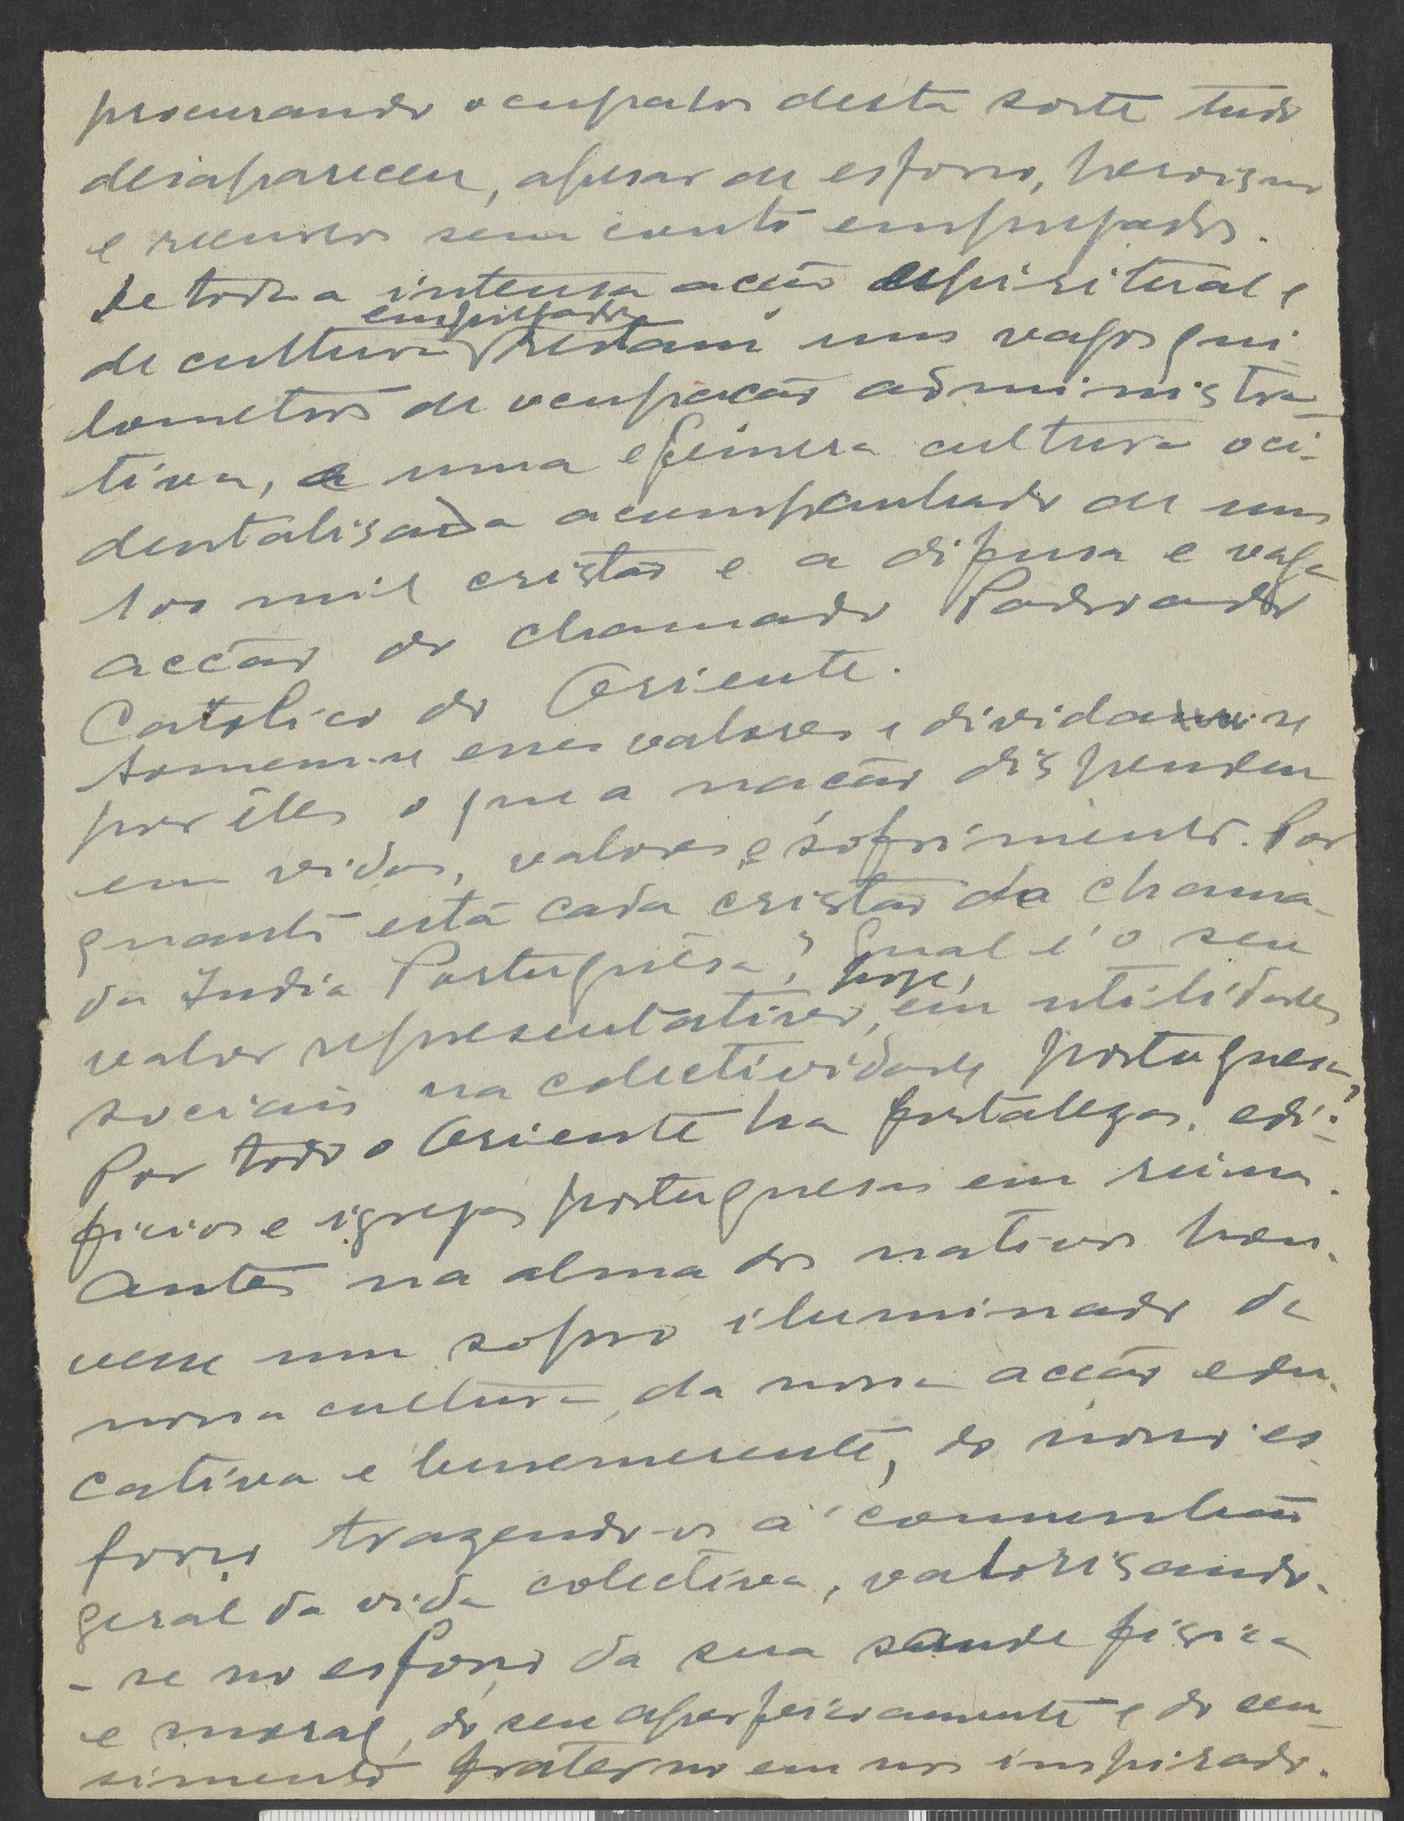 procurando ocupalos desta sorte tudo
desapareceu, apesar de esforço, heroismo
e recursos sem conto empregados.
De toda a intensa acção espiritual e
empregada
de cultura restam uns vagos qui-
lometros de ocupação administra-
tiva, e uma efemera cultura oci-
dentalisada acompanhado de uns
100 mil cristãos e a difusa e vaga
acção do chamado Padroado
Catolico do Oriente.
Tomem-se esses valores e divida-se
por êles o que a nação dispendeu
em vidas, valores e sofrimento. Por
quanto está cada cristão da chama-
da India Portuguêsa? Qual é o seu
hoje,
valor representativo, em utilidades
sociais na colectividade portuguesa?
Por todo o Oriente ha fortalezas, edi-
ficios e igrejas portuguesas em ruinas.
Antes na alma dos nativos hou-
vesse um sopro iluminado da
nossa cultura, da nossa acção edu-
cativa e benemerente, do nosso es-
forço trazendo-os á comunhão
geral da vida colectiva, valorisando-
-se no esforço da sua saude fisica
e moral, do seu aperfeiçoamento e do sen-
simento fraterno em nos inspirado.